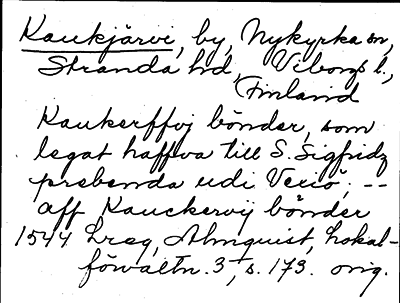 Kaukjärvi, by, Nykyrka sn,
Stranda hd, Viborgs l.,
(Finland
Kaukerffvj bönder, som
legat haffva till S. Sigfridz
prebenda udi Vexiö; --
aff Kauckervij bönder
1544 Lreg, Almquist, Lokal-
förvaltn. 3, s. 173. orig.